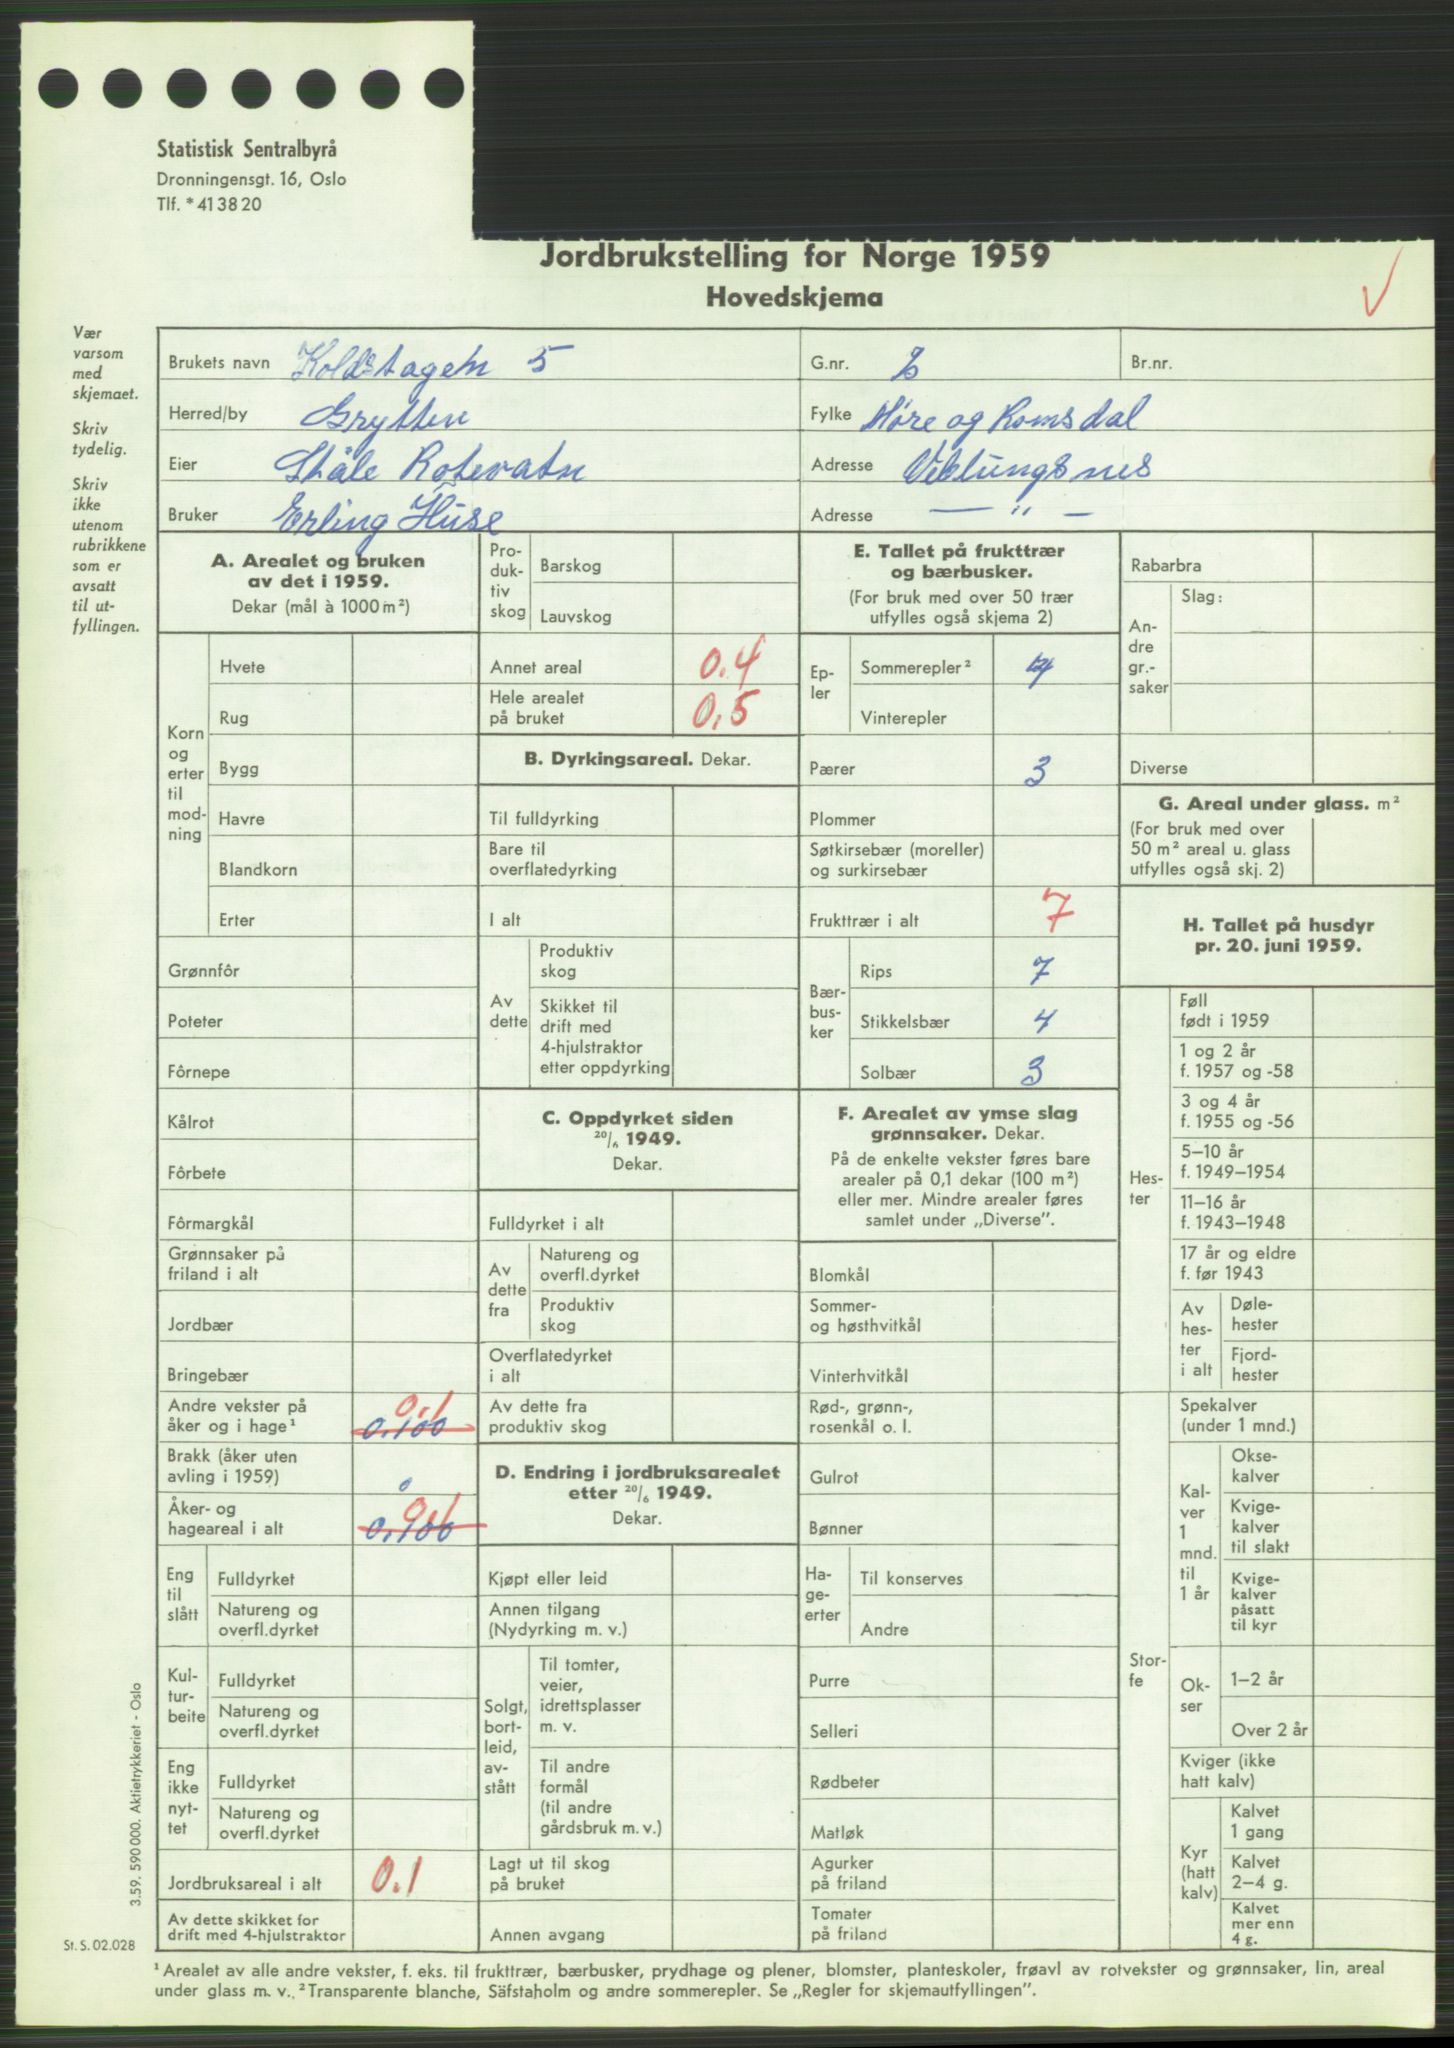 Statistisk Sentralbyrå
Dronningensgt. 16, Oslo
Tlf. * 41 38 20
Jordbrukstelling for Norge 1959
Hovedskjema
Vær
varsom
med
skjemaet.
Skriv
tydelig.
Skriv
ikke
utenom
rubrikkene
som er
avsatt
til ut-
fyllingen.
Brukets navn 5
G.nr.
Br.nr.
Herred/by Grytten
Fylke Møre og Romsdal
Eier Ståle Rotevatn
Adresse Veblungsnes
Bruker Erling Huse
Adresse — " —
A. Arealet og bruken
av det i 1959.
Dekar (mål à 1000 m²)
Korn
og
erter
til
mod-
ning
Hvete
Rug
Bygg
Havre
Blandkorn
Erter
Grønnfôr
Poteter
Fôrnepe
Kålrot
Fôrbete
Fôrmargkål
Grønnsaker på
friland i alt
Jordbær
Bringebær
Andre vekster på
åker og i hage¹ 0,1
0.100
Brakk (åker uten
avling i 1959)
Åker- og
hageareal i alt 0,1
0.100
Eng
til
slått
Fulldyrket
Natureng og
overfl.dyrket
Kul-
tur-
beite
Fulldyrket
Natureng og
overfl.dyrket
Eng
ikke
nyt-
tet
Fulldyrket
Natureng og
overfl.dyrket
Jordbruksareal i alt 0.1
Av dette skikket for
drift med 4-hjulstraktor
Pro-
duk-
tiv
skog
Barskog
Lauvskog
Annet areal 0.4
Hele arealet
på bruket 0,5
B. Dyrkingsareal. Dekar.
Til fulldyrking
Bare til
overflatedyrking
I alt
Av
dette
Produktiv
skog
Skikket til
drift med
4-hjulstraktor
etter oppdyrking
C. Oppdyrket siden
20/6 1949.
Dekar.
Fulldyrket i alt
Av
dette
fra
Natureng og
overfl.dyrket
Produktiv
skog
Overflatedyrket
i alt
Av dette fra
produktiv skog
D. Endring i jordbruksarealet
etter 20/6 1949.
Dekar.
Kjøpt eller leid
Annen tilgang
(Nydyrking m. v.)
Solgt,
bort-
leid,
av-
stått
Til tomter,
veier,
idrettsplasser
m. v.
Til andre
formål
(til andre
gårdsbruk m. v.)
Lagt ut til skog
på bruket
Annen avgang
E. Tallet på frukttrær
og bærbusker.
(For bruk med over 50 trær
utfylles også skjema 2)
Ep-
ler
Sommerepler² 4
Vinterepler
Pærer 3
Plommer
Søtkirsebær (moreller)
og surkirsebær
Frukttrær i alt 7
Bær-
bus-
ker
Rips 7
Stikkelsbær 4
Solbær 3
F. Arealet av ymse slag
grønnsaker. Dekar.
På de enkelte vekster føres bare
arealer på 0,1 dekar (100 m²)
eller mer. Mindre arealer føres
samlet under „Diverse”.
Blomkål
Sommer-
og høsthvitkål
Vinterhvitkål
Rød-, grønn-,
rosenkål o. l.
Gulrot
Bønner
Ha-
ge-
erter
Til konserves
Andre
Purre
Selleri
Rødbeter
Matløk
Agurker
på friland
Tomater
på friland
Rabarbra
An-
dre
gr.-
saker
Slag:
Diverse
G. Areal under glass. m²
(For bruk med over
50 m² areal u. glass
utfylles også skj. 2)
H. Tallet på husdyr
pr. 20. juni 1959.
Hes-
ter
Føll
født i 1959
1 og 2 år
f. 1957 og -58
3 og 4 år
f. 1955 og -56
5–10 år
f. 1949–1954
11–16 år
f. 1943–1948
17 år og eldre
f. før 1943
Av
hes-
ter
i alt
Døle-
hester
Fjord-
hester
Stor-
fe
Spekalver
(under 1 mnd.)
Kal-
ver
1
mnd.
til
1 år
Okse-
kalver
Kvige-
kalver
til slakt
Kvige-
kalver
påsatt
til kyr
Ok-
ser
1–2 år
Over 2 år
Kviger (ikke
hatt kalv)
Kyr
(hatt
kalv)
Kalvet
1 gang
Kalvet
2–4 g.
Kalvet
mer enn
4 g.
3.59. 590 000. Aktietrykkeriet - Oslo
St. S. 02.028
¹ Arealet av alle andre vekster, f. eks. til frukttrær, bærbusker, prydhage og plener, blomster, planteskoler, frøavl av rotvekster og grønnsaker, lin, areal
under glass m. v. ² Transparente blanche, Säfstaholm og andre sommerepler. Se „Regler for skjemautfyllingen”.